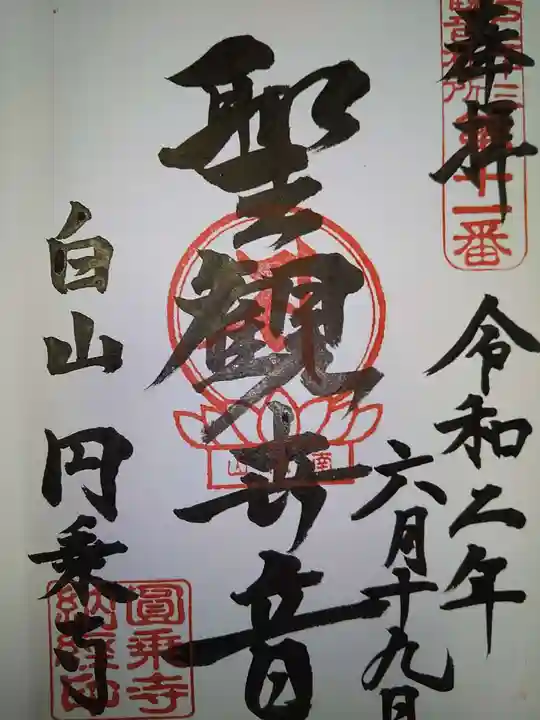 奉拝
十一番
令和二年
六月十九日
聖観世音
白山 円乗寺
圓乗寺
納経印